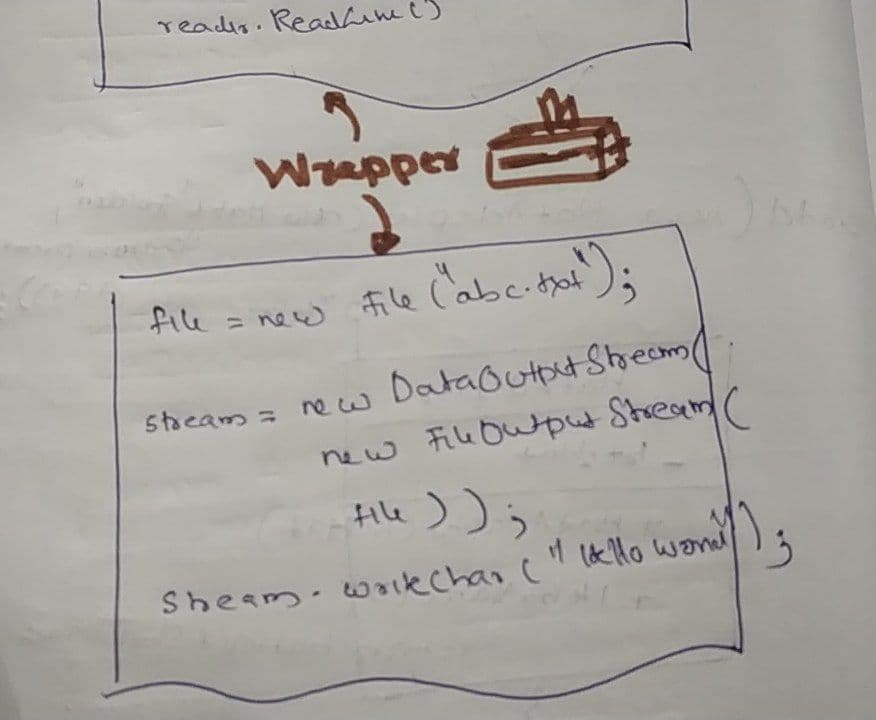 reader.ReadLine()
Wrapper
file = new File("abc.txt");
stream = new DataOutputStream(
new FileOutputStream(
file));
Stream.writeChar("Hello World");